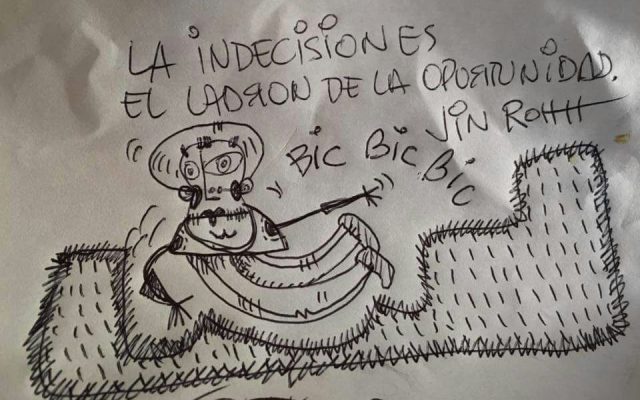 LA iNDECiSiON ES
EL LADRON DE LA OPORTUNIDAD.
JiN ROHH
BiC BiC BiC